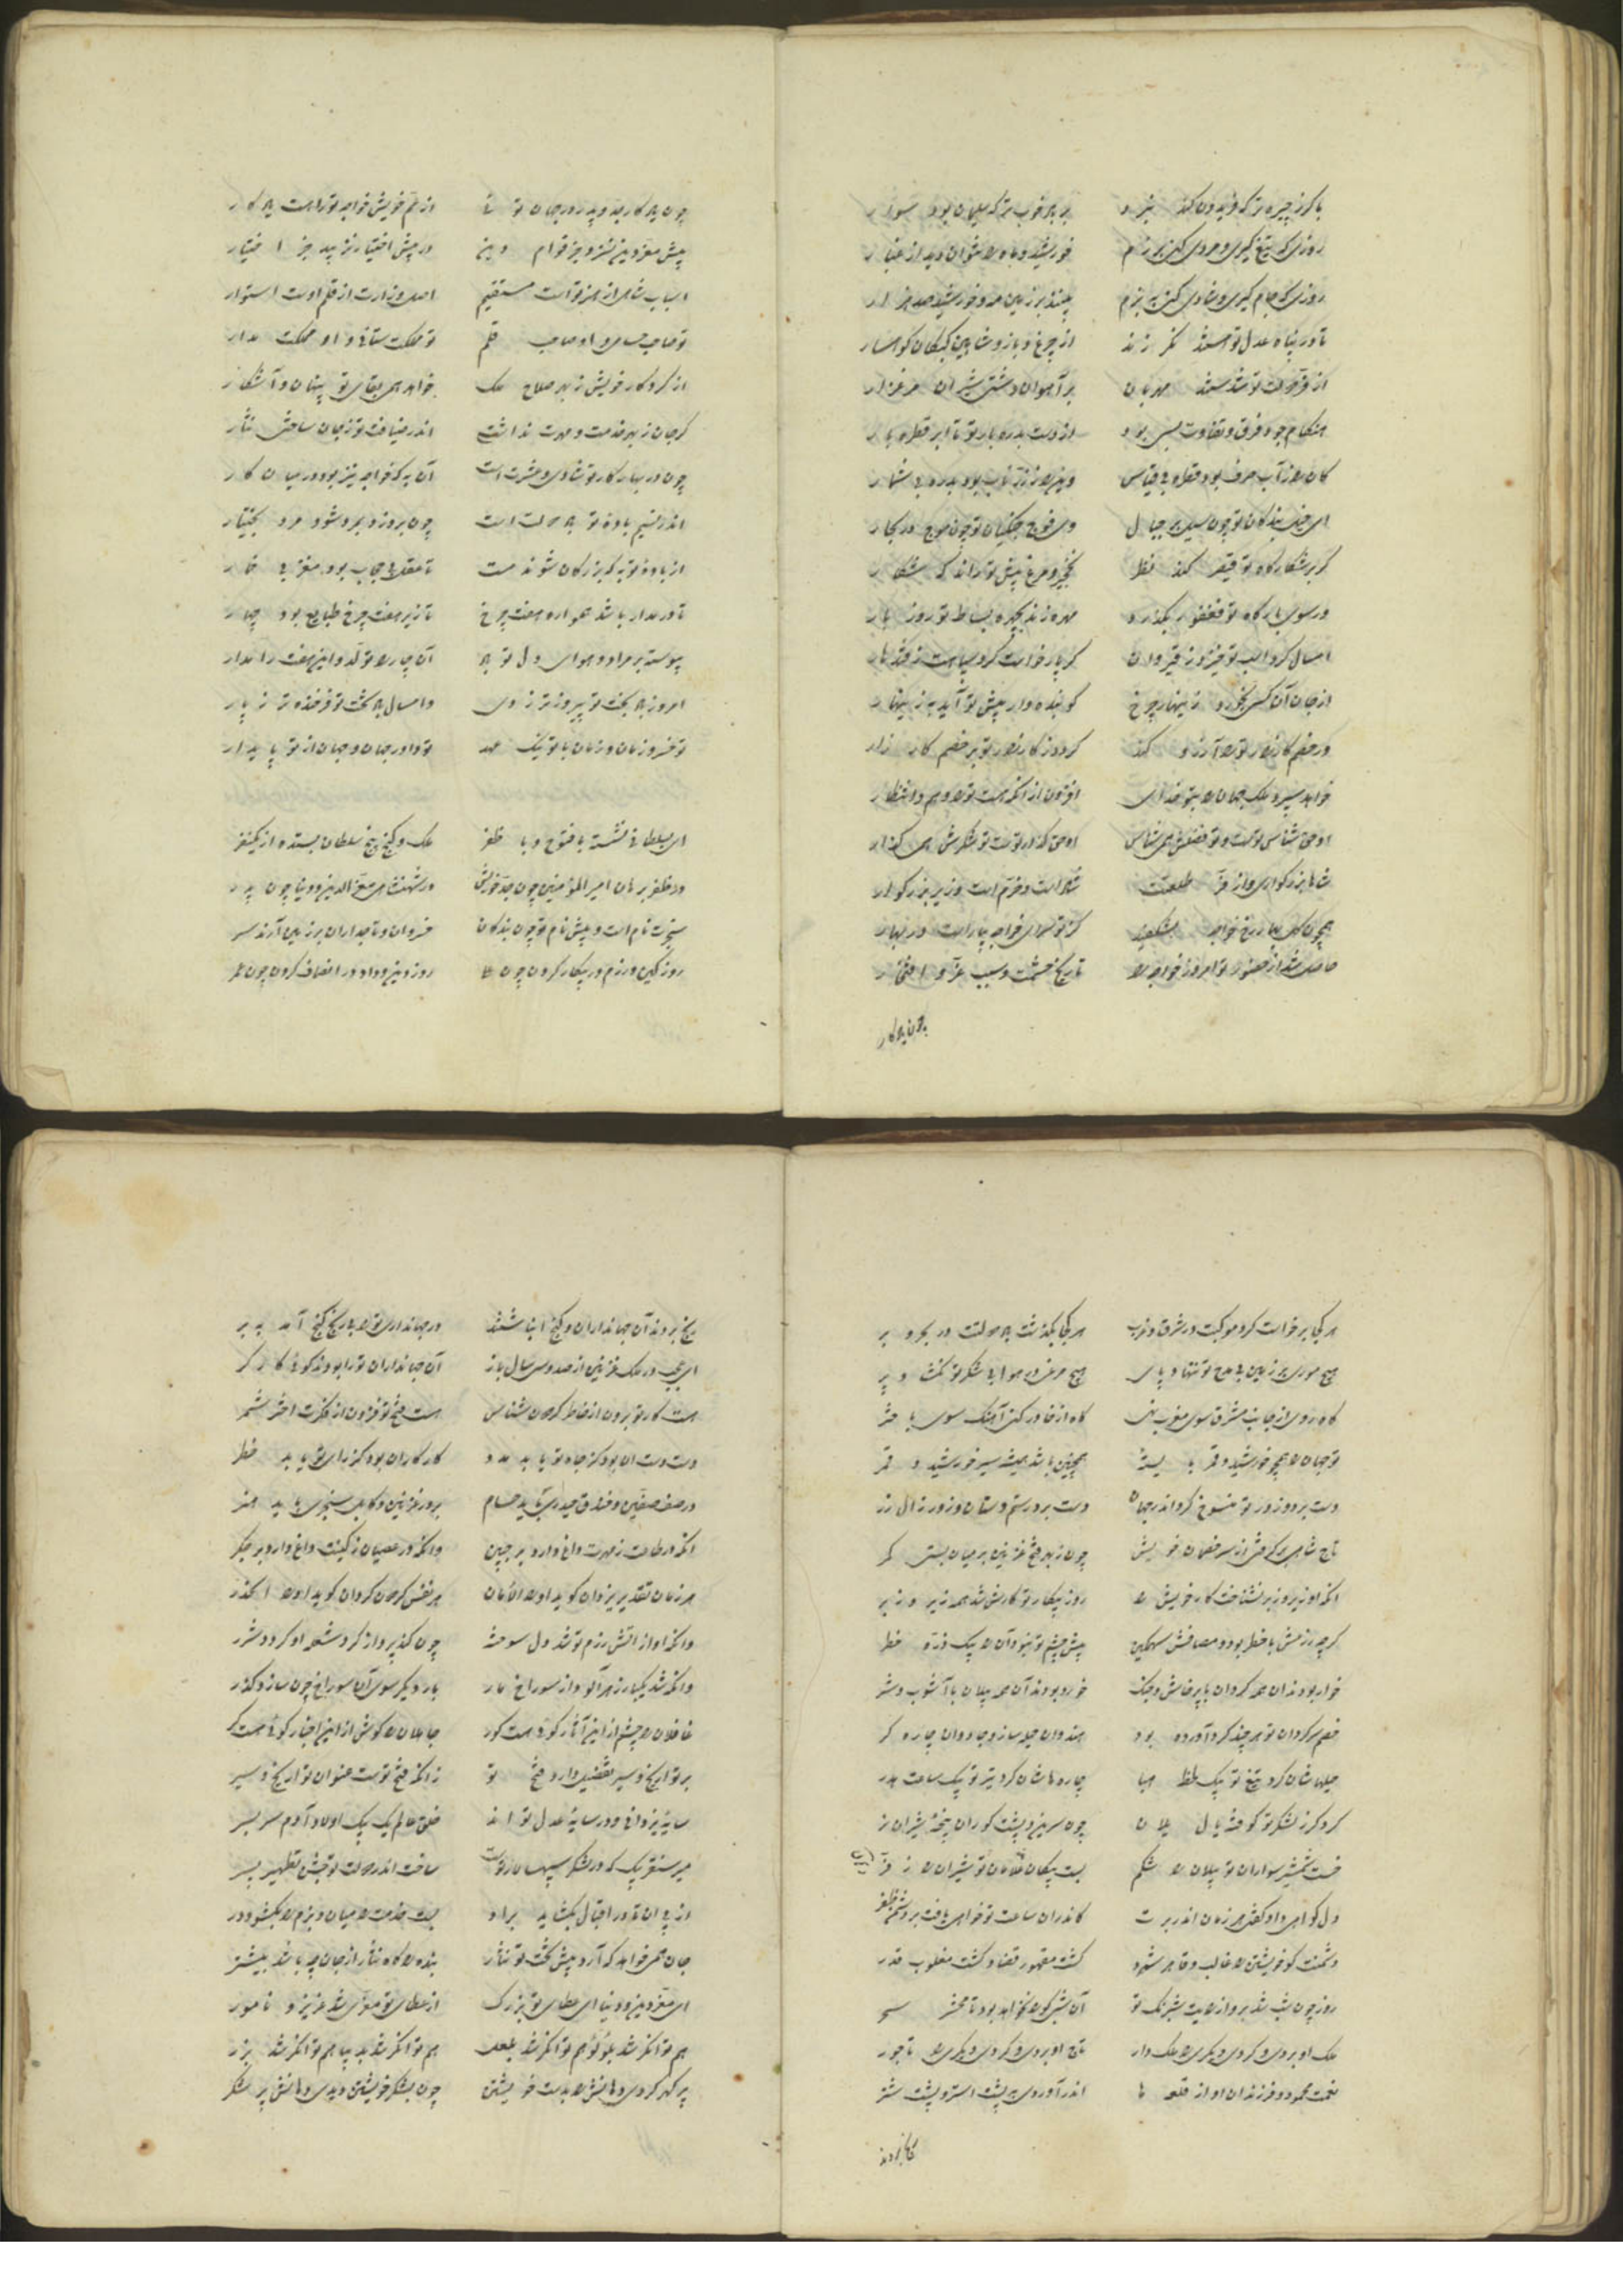 با گرز چیره تر که فریدون کند نبرد بر بهر خوب تر که سلیمان بود سوار
روزی که تیغ گیری و مردی کنی برزم خورشید و ماه را نتوان دید از غبار
روزی که جام گیری و شادی کنی به بزم بینند بر زمین مه و خورشید صد هزار
تا در پناه عدل تو هستند نگذرند از چرغ و باز و شاهین کبکان کوهسار
از فر دولت تو شدستند مهربان بر آهوان دشتی شیران مرغزار
هنگام جود فرق و تفاوت بسی بود از دست بدره بار تو تا ابر قطره بار
کان را ز آب صرف بود قطره بی قیاس وین را ز زر ناب بود بدره بی شمار
ای خیل بندگان تو چون سیل بر جبال وی فوج جنگیان تو چون موج در بحار
گر بر شکارگاه تو قیصر کند نظر نخچیر و مرغ پیش تو راند که شکار
ور سوی بارگاه تو فغفور بگذرد مهره زند بچهره بساط تو روز بار
امسال کرد هیبت تو قیروز قیروان گر پار خواست کرد سیاست ز قندهار
از جان آن کسی نخورد زینهار چرخ کو بنده وار پیش تو آید به زینهار
ور خصم کارزار تو را آرزو کند گردد ز کارزار تو بر خصم کار زار
خواهد سپرد ملک جهان را بتو خدای افزون از آنکه هست تو را وهم و انتظار
او حق شناس توست و تو فضلش همی شناس او حق گذار توست تو شکرش همی گذار
شاها بزرگواری و از فر طلعتت شادانست و خرم است وزیر بزرگوار
همچون گل بهار رخ خواجه بشکفید کز تو سرای خواجه بیاراست در بهار
حاصل شد از حضور تو امروز خواجه را تاریخ حشمت و سبب عز و افتخار
چون به کار
چون به کار دید پدر در جهان تو را از عم خویش خواجه تو راست به کار
پیش معز دین نسزد جز قوام دین در پیش اختیار نزیبد جز اختیار
اسباب شاهی از هنر توست مستقیم اصل وزارت از قلم اوست استوار
تو صاحب حسامی و او صاحب قلم تو مملکت ستانی و او مملکت مدار
از کردگار خویش ز بهر صلاح ملک خواهد همی بقای تو پنهان و آشکار
گر جان ز بهر خدمت و مهرت نداشتی اندر ضیافت تو ز جان ساختی نثار
چون در بهار کار تو شادی و عشرت است آن به که خواجه نیز بود در میان کار
اندر نسیم باده تو به دولت است چون بر وزد بمرد شود مرد بختیار
از باده تو به که بزرگان شوند مست تا عقل بی حجاب بود مغز بی خمار
تا در مدار باشد همواره هفت چرخ تا زیر هفت چرخ طبایع بود چهار
پیوسته بر مراد و هوای دل تو باد آن چار را تولد و این هفت را مدار
امروز به بخت تو پیروزتر ز دی و امسال به تخت تو فرخنده تر ز پار
تو خسرو زمان و زمان با تو نیک عهد تو داور جهان و جهان از تو پایدار
ای بسلطانی نشسته با فتوح و با ظفر ملک و گنج پنج سلطان بستده از یک نفر
در ظفر برهان امیر المؤمنین چون جد خویش در شهنشاهی معز الدین و دنیا چون پدر
سنجرت نام است و پیش نام تو چون بندگان خسروان و تاجداران بر زمین آرند سر
روز کین و رزم در پیکار کردن چون علی روز دین و داد در انصاف کردن چون عمر
هر کجا برخاست گرد موکبت در شرق و غرب هر کجا بگذشت به دولت در بحر و بر
هیچ موری بر زمین بی مدح تو ننهاد پای هیچ مرغی در هوا بی شکر تو نگشاد پر
گاه روی از جانب مشرق سوی مغرب نهی گاه از خاور کنی آهنگ سوی باختر
تو جهان را همچو خورشید و قمر بایسته همچنین باشد همیشه سیر خورشید و قمر
دست برد و زور تو منسوخ کرد اندر جهان دست برد رستم دستان و زور زال زر
تاج شاهی برگرفتی از سر خصمان خویش چون ز بهر فتح غزنین بر میان بستی کمر
آنکه او زیر و زبر نشناخت کار خویش را روز پیکار تو کارش شد همه زیر و زبر
گرچه رزمش با خطر بود و مصافش سهمگین پیش چشم تو نبود آن را یک ذره خطر
خوار بودند آن همه گردان با پرخاش و جنگ خرد بودند آن همه پیلان با آشوب و شر
خصم گردان تو هر چند گرد آورده بود هندوان حیله ساز و جادوان چاره گر
حیله هاشان کرد تیغ تو بیک لحظه هبا چاره هاشان کرد تیر تو بیک ساعت هدر
کرد گرز لشکر تو کوفته یال یلان چون سرین و پشت گوران پنجه شیران نر
خست شمشیر سواران تو پیلان را شکم بست پیکان غلامان تو شیران را زفر
دل گواهی داد گفتی هر زمان اندر برت کاندر آن ساعت تو خواهی یافت بر دشمن ظفر
دشمنت کو خویشتن را غالب و قاهر شمرد گشت مقهور قضا و گشت مغلوب قدر
روز چون شب شد بر او از هیبت شبرنگ تو آن شبی کو را نخواهد بود تا محشر سحر
ملک او بردی و کردی دیگری را ملک دار تاج او بردی و کردی دیگری را تاجور
نعمت محمود و فرزندان او از قلعه ها اندر آوردی به پشت استر و پشت شتر
رنج بردند آن جهانداران و گنج انباشتند در جهانداری تو را بی رنج گنج آمد به بر
ای عجب در ملک غزنین از صد و سی سال باز آن جهانداران تو را بودند گوئی کارگر
هست کار تو برون از خاطر گردون شناس هست فتح تو فزون از فکرت اختر شمر
دست دست آن بود کز جاه تو یابد مدد کار کار آن بود کز رای تو یابد خطر
در صف صفین و خندق حیدری باید حسام بر در غزنین و کابل سنجری باید هنر
آنکه در طاعت ز مهرت داغ دارد بر جبین وانکه در عصیان ز کینت داغ دارد بر جگر
هر زمان تقدیر یزدان گوید او را الامان هر نفس گردون گردان گوید او را الحذر
وانکه او از آتش رزم تو شد دل سوخته چون کند پرواز گرد شعله او گرد و شرر
وانکه شد یکبار زهرآلود از سوراخ مار بار دیگر سوی آن سوراخ چون سازد گذر
غافلان را چشم از این آثار گوئی هست کور جاهلان را گوش از این اخبار گوئی هست کر
بر تواریخ و سیر تفضیل دارد فتح تو زانکه فتح توست عنوان تواریخ و سیر
سایه یزدانی و در سایه عدل تواند خلق عالم یک بیک اولاد آدم سر بسر
میر سنقر بک که در لشکر سپهسالار توست ساخت اندر دولت تو جشن تطهیر پسر
از پی آن تا در اقبال بگشاید بر او بست خدمت را میان و بزم را بگشود در
جان همی خواهد که آرد پیش تخت تو نثار بنده را گاه نثار از جان چه باشد بیشتر
ای معز دین و دنیا ای عطای تو بزرگ از عطای تو معزی شد عزیز و نامور
هم توانگر شد بلؤلؤ هم توانگر شد بلعل هم توانگر شد به دیبا هم توانگر شد بزر
پر گهر کردی دهانش را به دست خویشتن چون بشکر خویشتن دیدی دهانش پر شکر